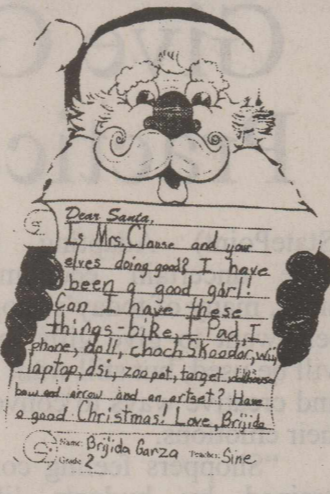 Dear Santa,
Is Mrs. Clause and your
elves doing good? I have
been a good girl!
Can I have these
things-bike, I Pad, I
phone, doll, choch SKoodor, wii,
laptop, dsi, zoo pet, target, dollhouse
bow and arrow and an artset? Have
a good Christmas! Love, Brijida
Name: Brijida Garza Teacher: Sine
Grade 2